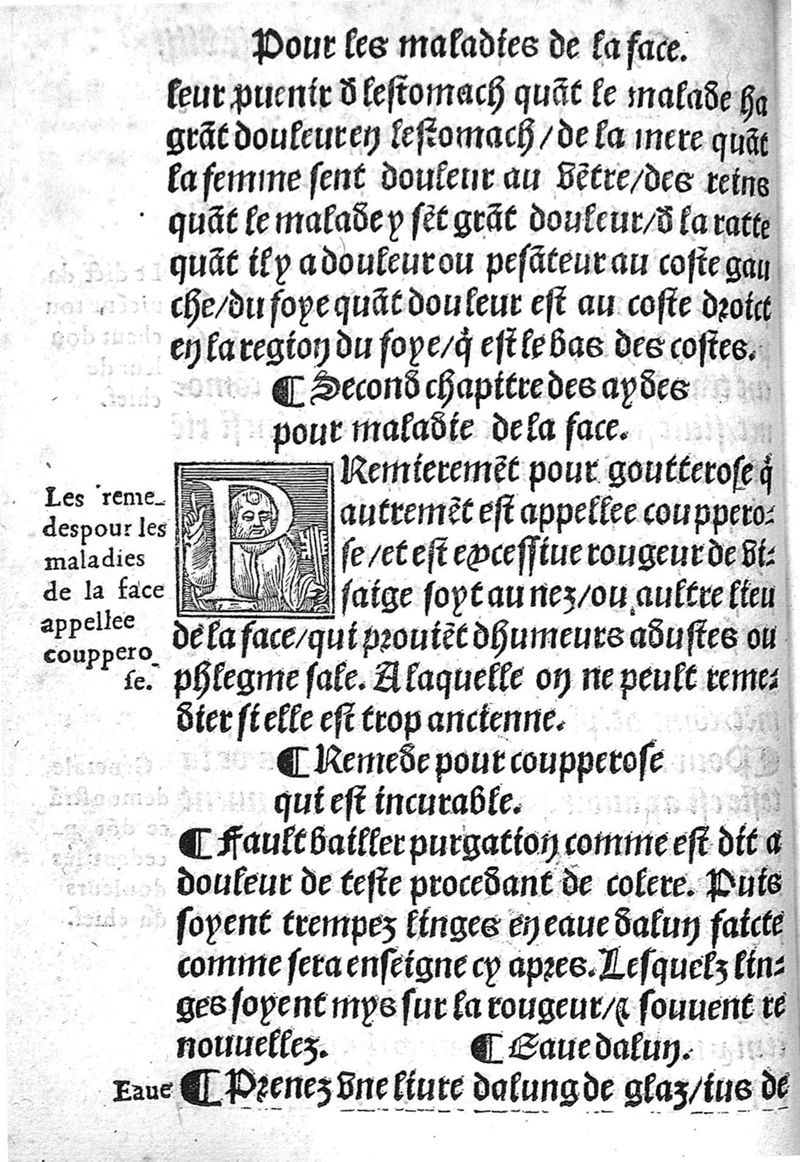 Pour les maladies de la face.
leur puenir d lestomach quãt le malade ha
grãt douleur en lestomach/de la mere quãt
la femme sent douleur au vẽtre/des reins
quãt le malade y sẽt grãt douleur/d la ratte
quãt il y a douleur ou pesãteur au coste gau
che/du foye quãt douleur est au coste droict
en la region du foye/q̃ est le bas des costes.
¶ Second chapitre des aydes
pour maladie de la face.
PRemieremẽt pour goutterose q̃
autremẽt est appellee couppero⸗
se/et est excessiue rougeur de vi⸗
saige soyt au nez/ou aultre lieu
de la face/qui prouiẽt dhumeurs adustes ou
phlegme sale. A laquelle on ne peult reme⸗
dier si elle est trop ancienne.
Les reme_
des pour les
maladies
de la face
appellee
couppero_
se.
¶ Remede pour coupperose
qui est incurable.
¶ Fault bailler purgation comme est dit a
douleur de teste procedant de colere. Puis
soyent trempez linges en eaue dalun faicte
comme sera enseigne cy apres. Lesquelz lin⸗
ges soyent mys sur la rougeur/⁊ souuent re
nouuellez. ¶ Eaue dalun.
Eaue ¶ Prenez vne liure dalung de glaz/ius de